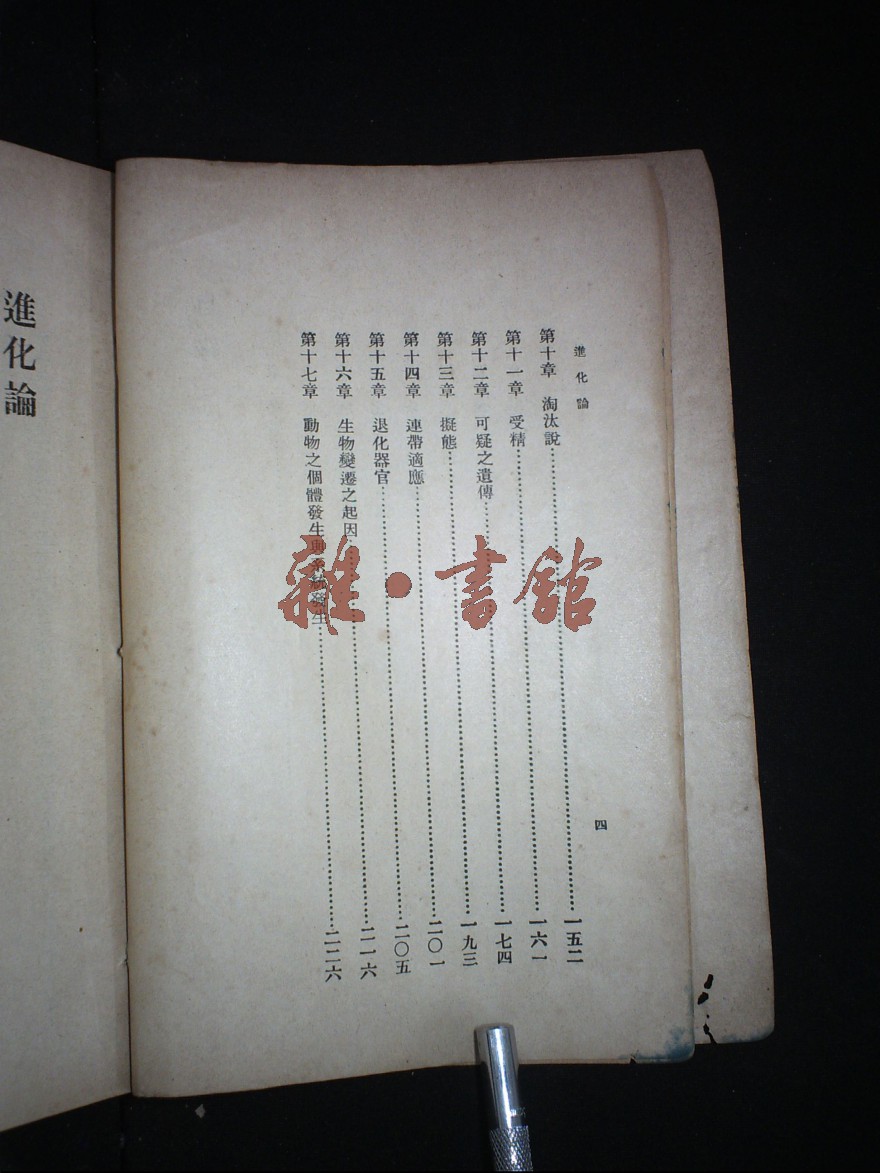 進化論
四
第十章 淘汰說……一五二
第十一章 受精……一六一
第十二章 可疑之遺傳……一七四
第十三章 擬態……一九三
第十四章 連帶適應……二〇一
第十五章 退化器官……二〇五
第十六章 生物變遷之起因……二一六
第十七章 動物之個體發生與系統發生……二二六
進化論
雜·書館